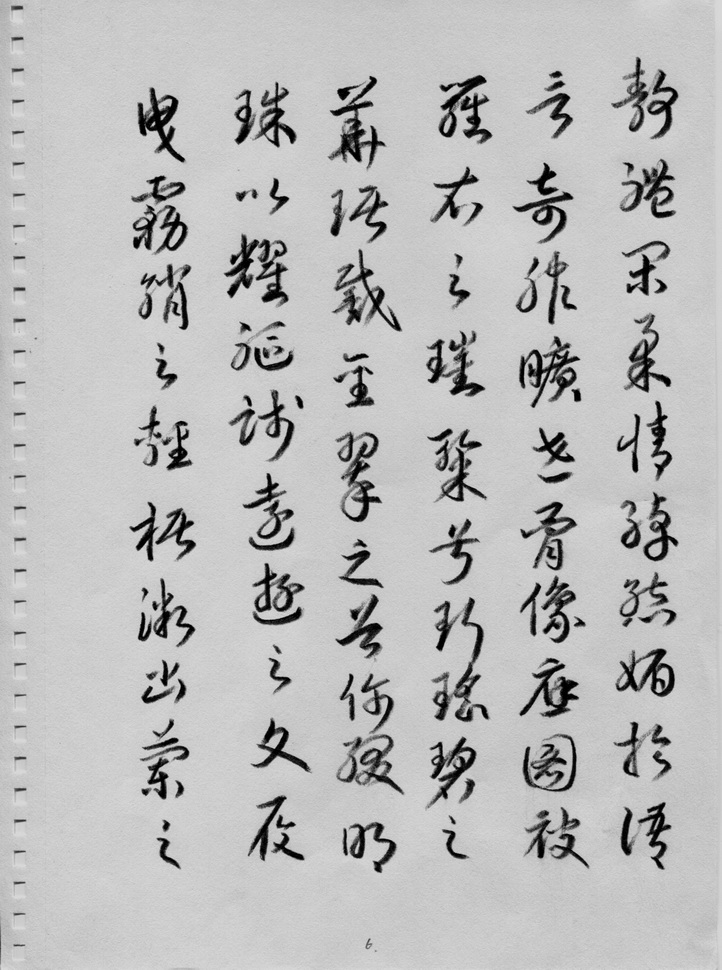 靜體閑柔情綽態媚於語
言奇服曠世骨像應圖被
羅衣之璀粲兮珥瑤碧之
華琚戴金翠之首飾綴明
珠以耀軀踐遠遊之文履
曳霧綃之輕裾微幽蘭之
6.